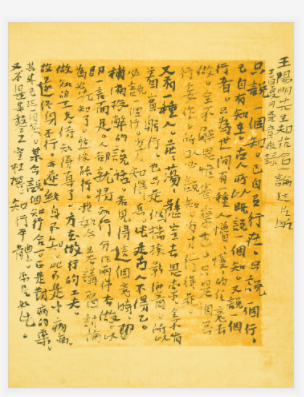 王陽明先生知行合一論
只說一個知。已自有行在。只說一個行。
已自有知在。古人所以既說一個知。又說一個
行者。只為世間有一種人。懵懵懂懂的任意去
做。全不解思惟省察。也只是個冥
行妄作。所以必說個知。方才行得是。
又有一種人。茫茫蕩蕩。懸空去思索。全不肯
著實躬行。也只是個揣摸影響。所以
必說一個行。方才知得真。此是古人不得已
補偏救弊的說話。若見得這個意時。
即一言而足。今人卻就將知行分作兩件去做。以
為必先知了然後能行。我如今且去講習討論
做知的工夫。待知得真了。方去做行的工夫。
故遂終身不行。亦遂終身不知。此不是小病痛。
其來已非一日矣。某今說個知行合一。正是對病的藥。
又不是某鑿空杜撰。知行本體。原是如此。